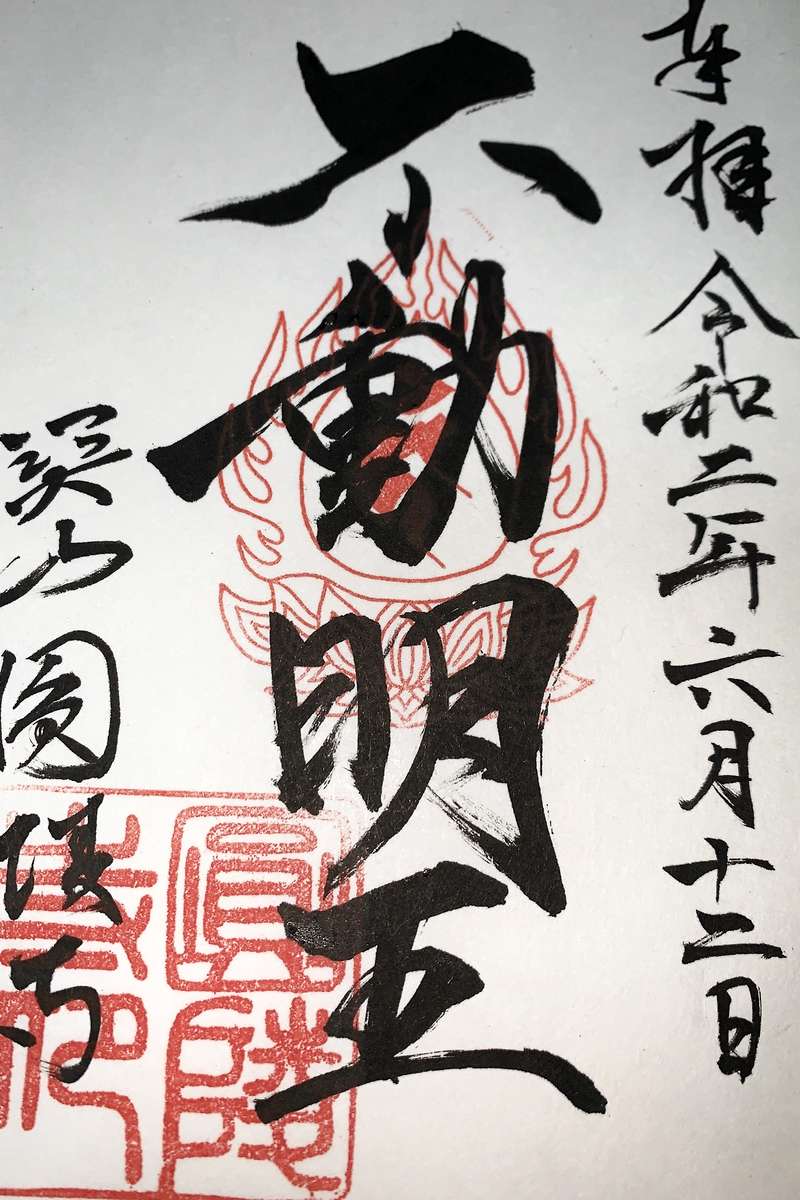 奉拝 令和二年六月十二日
不動明王
山 圓護寺